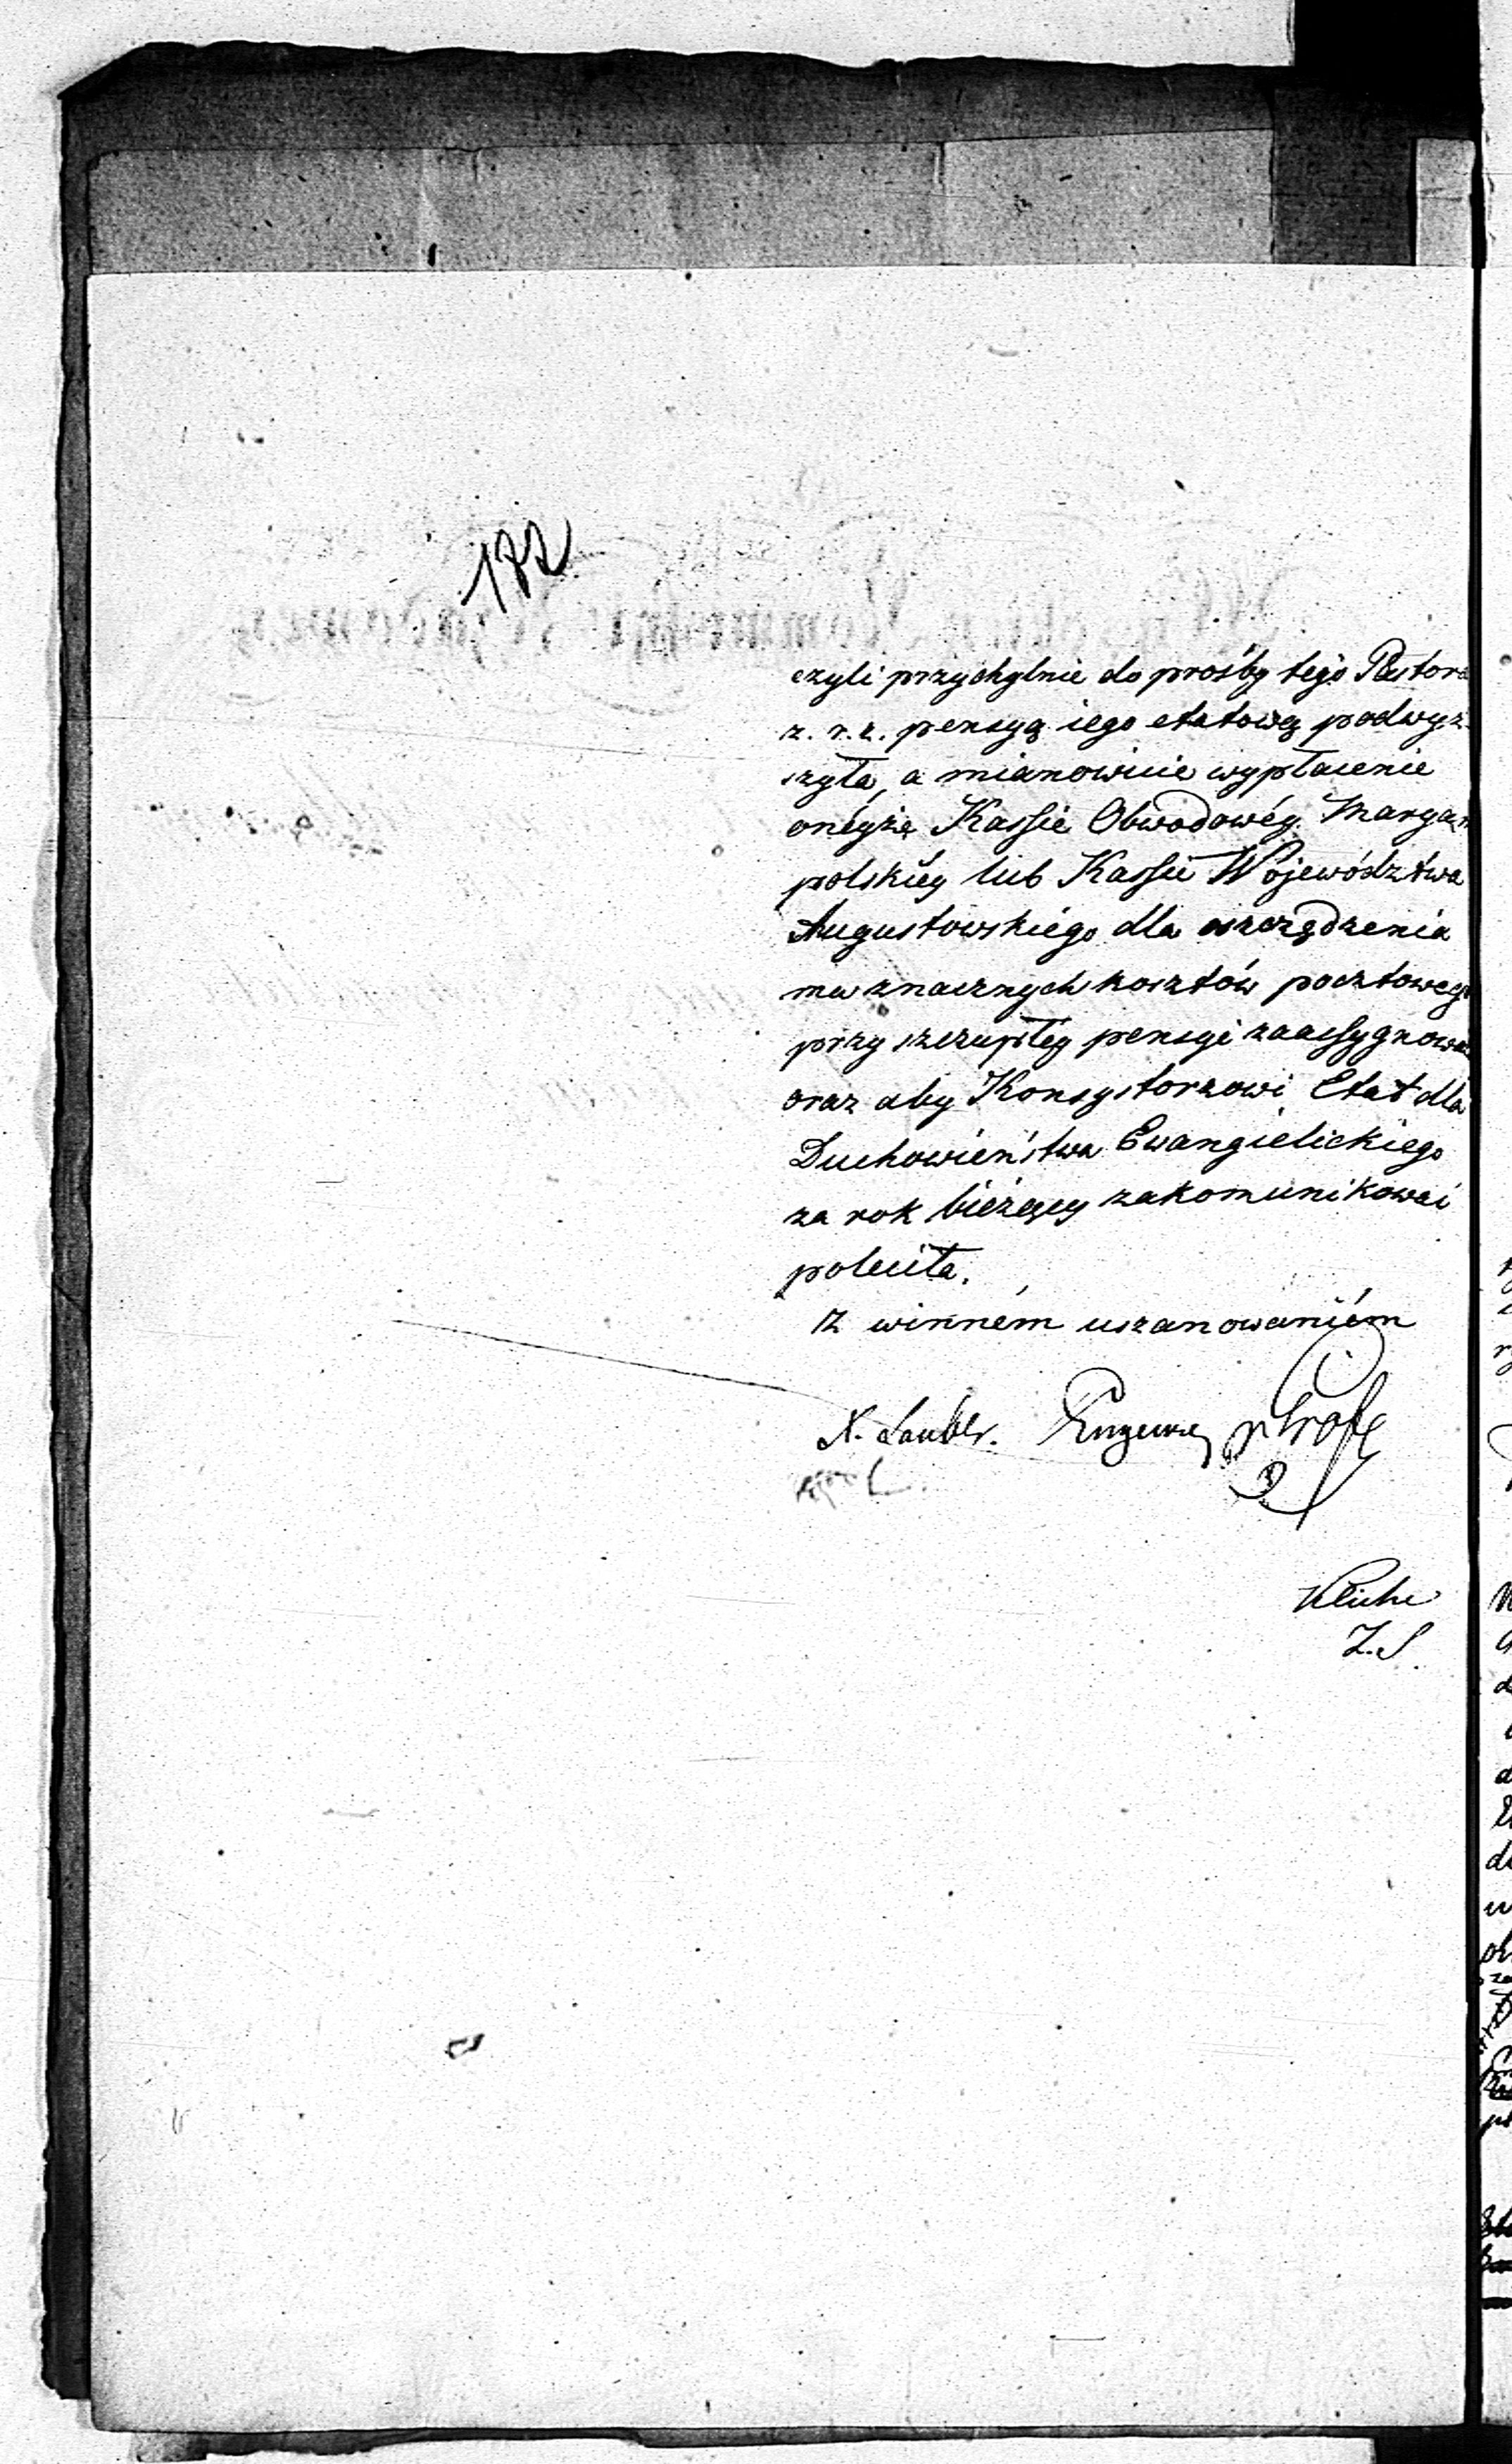 172
czyli przychylnie do prośby tego Pastora
z. r. z. pensyą iego etatową podwyż-
szyła, a mianowicie wypłacenie
onéyże Kassie Obwodowéy Maryam
polskiéy lub Kassie Wojewódźtwa
Augustowskiego dla oszczędzenia
mu znacznych kosztów pocztowego
przy szczupłey pensyi zaassygnować
oraz aby Konsystorzowi Etat dla
Duchowieństwa Ewangielickiego
za rok bieżący zakomunikować
poleciła.
Z winném uszanowaniém
X. Lauber.
Z. S.